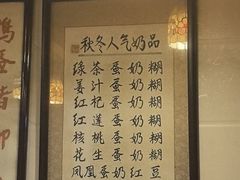 秋冬人气奶品
绿茶蛋奶糊
姜汁蛋奶糊
红杞蛋奶糊
红莲蛋奶糊
核桃蛋奶糊
花生蛋奶糊
凤凰蛋奶红豆